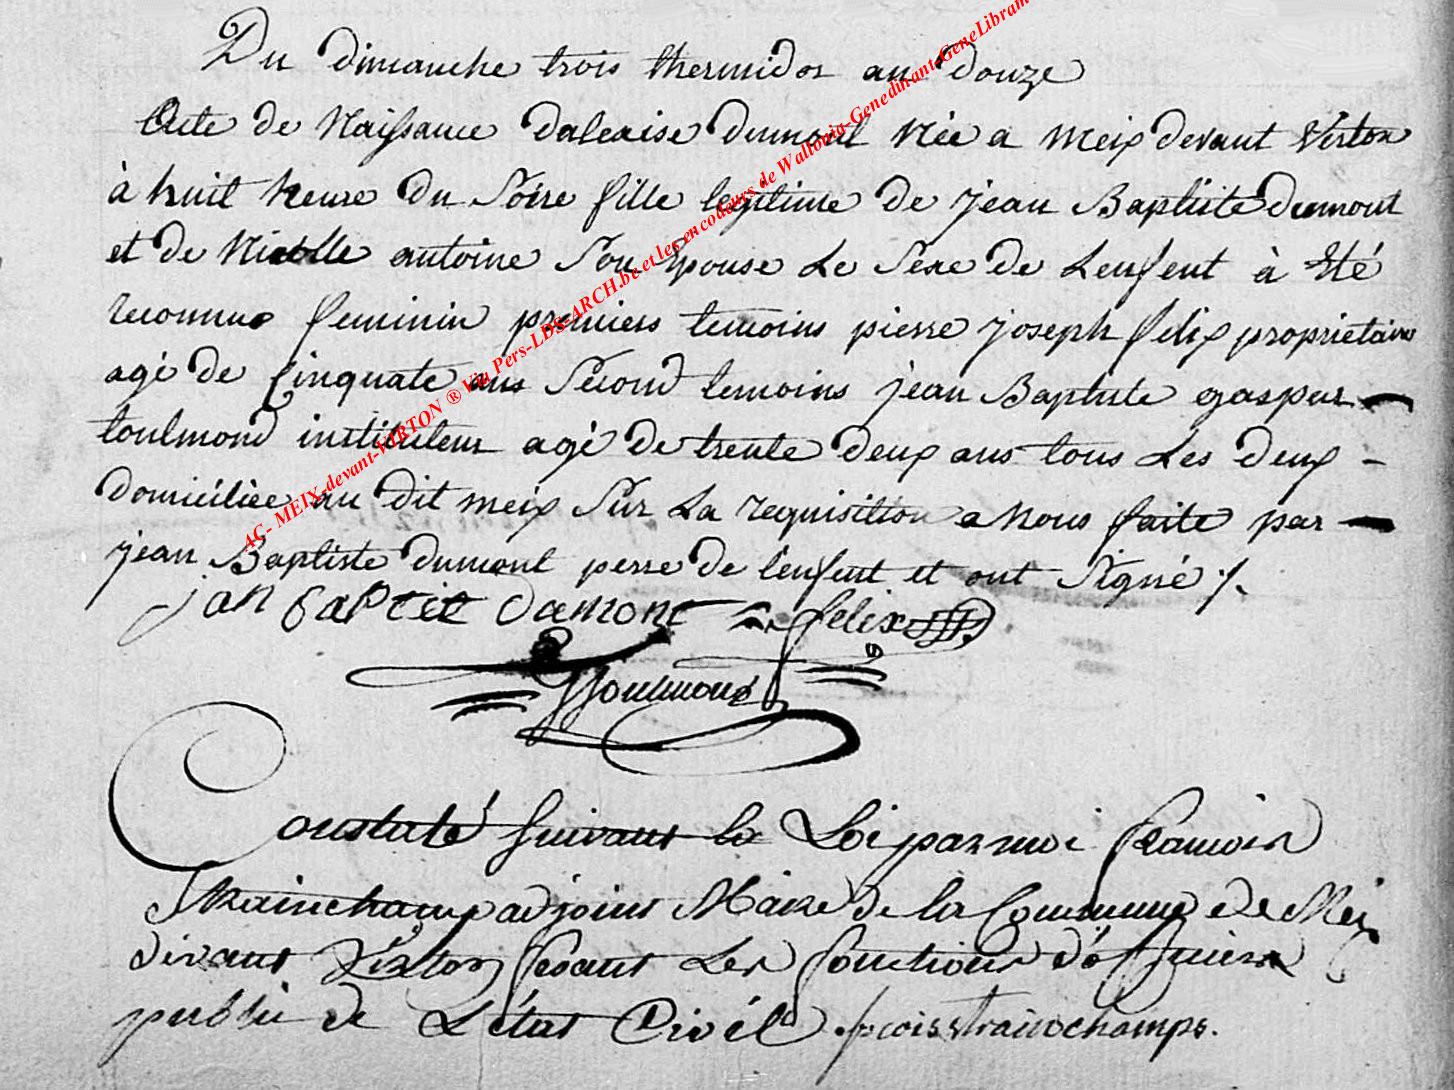 Du dimanche trois thermidor an douze
Acte de Naissance dalexise dumont Née a Meix devant Virton
à huit heure du Soire fille legitime de jean Baptiste dumont
et de Nicolle antoine Son Epouse Le Sexe de Lenfent à Eté
reconnue feminin premiers temoins pierre joseph felix proprietaire
agé de Cinquate ans Second temoins jean Baptiste gaspar
toulmond instituteur agé de trente deux ans tous Les deux -
domiciliee au dit meix Sur La requisition a Nous faite par
jean Baptiste dumont perre de l'enfent et ont Signé /.
jan baptit dumont felix
Toulmond
Constaté Suivant la Loi par moi francois
Strainchamp adjoint Maire de la Commune de Meix
devant Virton fesant Les fonctions d'officier
public de L'état Civél. fcois strainchamps.
AG- MEIX-devant-VIRTON ® Via Pers-LDS-ARCH.be et les encodeurs de Wallonia-Genedinant-GeneLibram